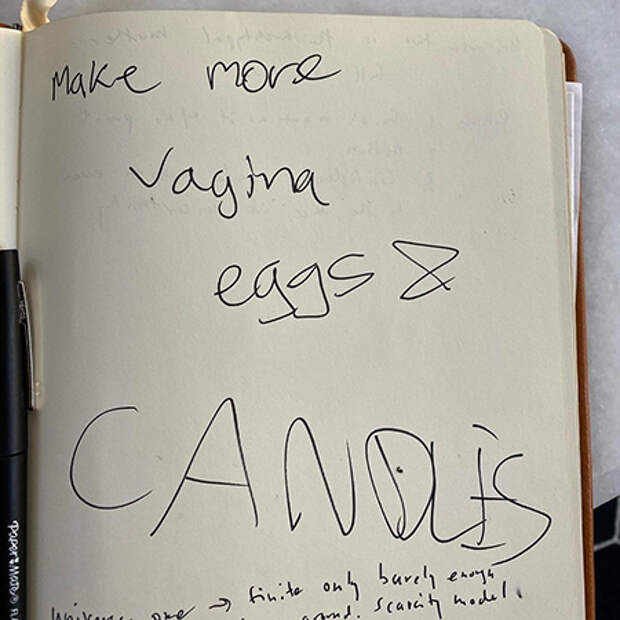 Make more
Vagina
eggs &
CANDLES
→ finite only barely enough
scarcity model.
Paper Mate